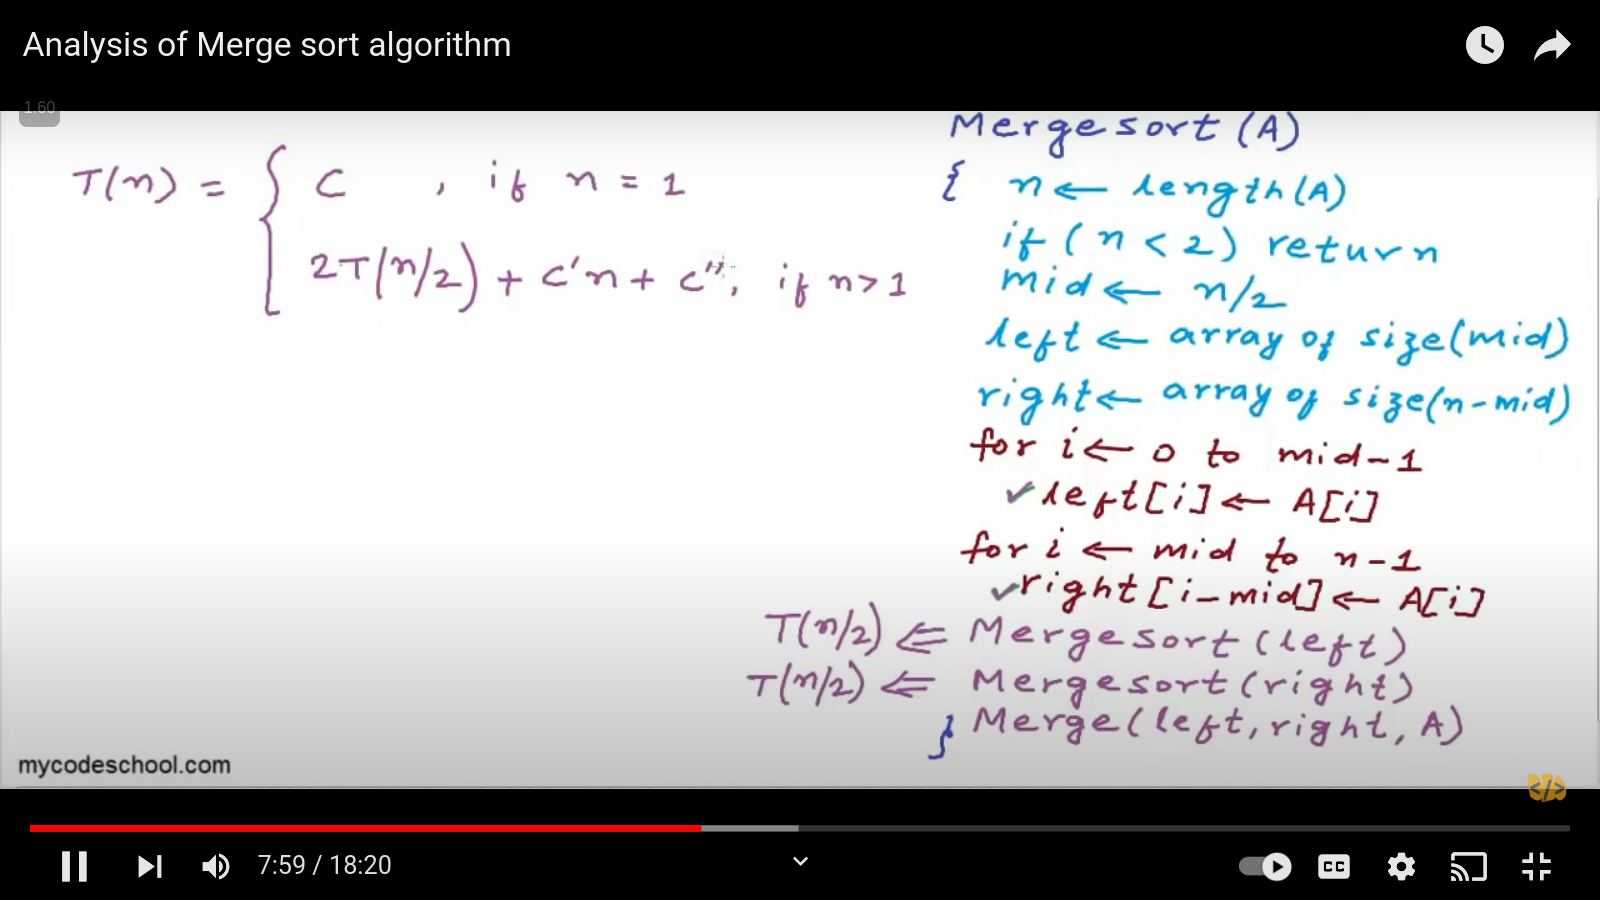 Analysis of Merge sort algorithm
1.60
T(n) = { C , if n = 1
2T(n/2) + C'n + C'', if n > 1
Mergesort (A)
{ n ← length(A)
if (n < 2) return
mid ← n/2
left ← array of size(mid)
right ← array of size(n-mid)
for i ← 0 to mid-1
✓ left[i] ← A[i]
for i ← mid to n-1
✓ right[i-mid] ← A[i]
T(n/2) ⇐ Mergesort (left)
T(n/2) ⇐ Mergesort (right)
} Merge(left, right, A)
mycodeschool.com
</>
7:59 / 18:20
CC